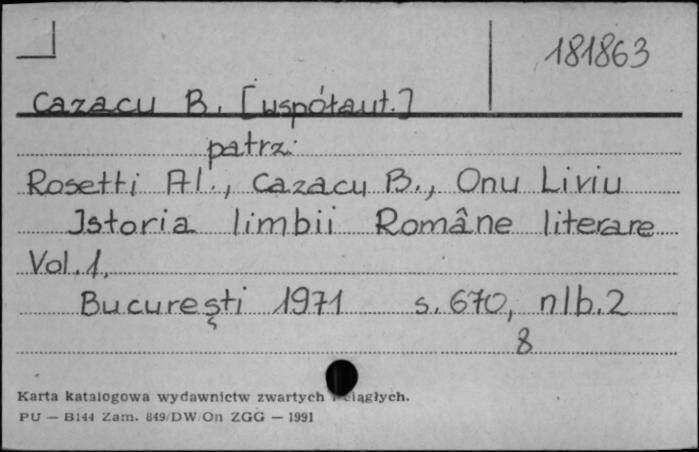 181863
Cazacu B. [współaut.]
patrz:
Rosetti Al., Cazacu B., Onu Liviu
Istoria limbii Române literare
Vol. 1.
Bucureşti 1971 s. 670, nlb. 2
8
Karta katalogowa wydawnictw zwartych i ciągłych.
PU — B144 Zam. 849/DW/On ZGG — 1991